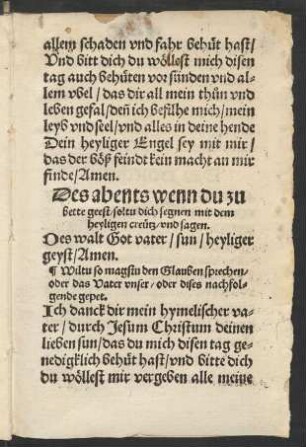 allem schaden vnd fahr behüt hast/
Vnd bitt dich du wöllest mich disen
tag auch behüten vor sünden vnd al-
lem vbel/das dir all mein thün vnd
leben gefal/deñ ich befilhe mich/mein
leyb vnd seel/vnd alles in deine hende
Dein heyliger Engel sey mit mir/
das der böß feindt kein macht an mir
finde/Amen.
Des abents wenn du zu
bette geest/soltu dich segnen mit dem
heyligen creütz/vnd sagen.
Des walt Got vater/sun/heyliger
geyst/Amen.
¶ Wiltu so magstu den Glauben sprechen/
oder das Vater vnser/oder dises nachfol-
gende gepet.
Ich danck dir mein hymelischer va-
ter/durch Jesum Christum deinen
lieben sun/das du mich disen tag ge-
nedigklich behüt hast/vnd bitte dich
du wöllest mir vergeben alle meine